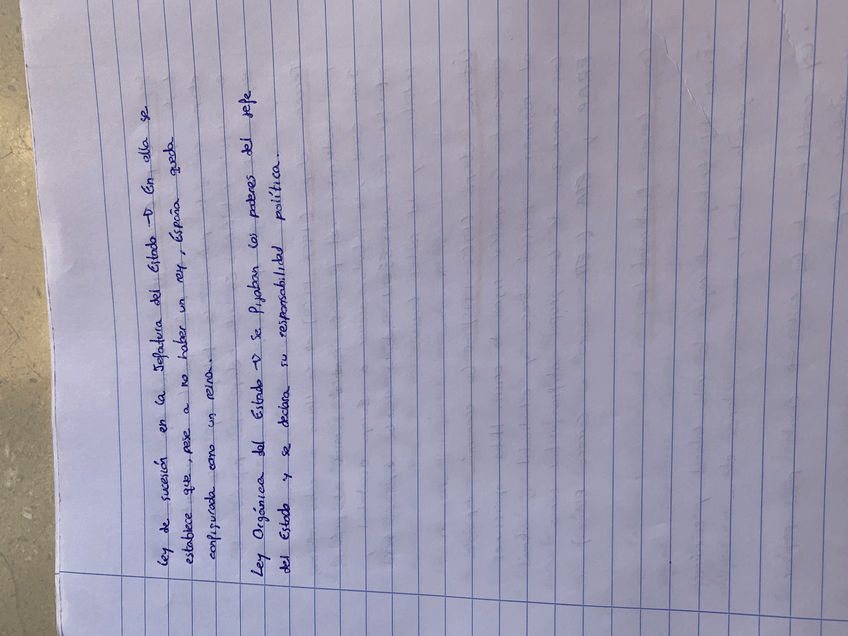 Ley de sucesión en la Jefatura del Estado → En ella se
establece que, pese a no haber un rey, España queda
configurada como un reino.
Ley Orgánica del Estado → Se fijaban los poderes del Jefe
del Estado y se declara su responsabilidad política.